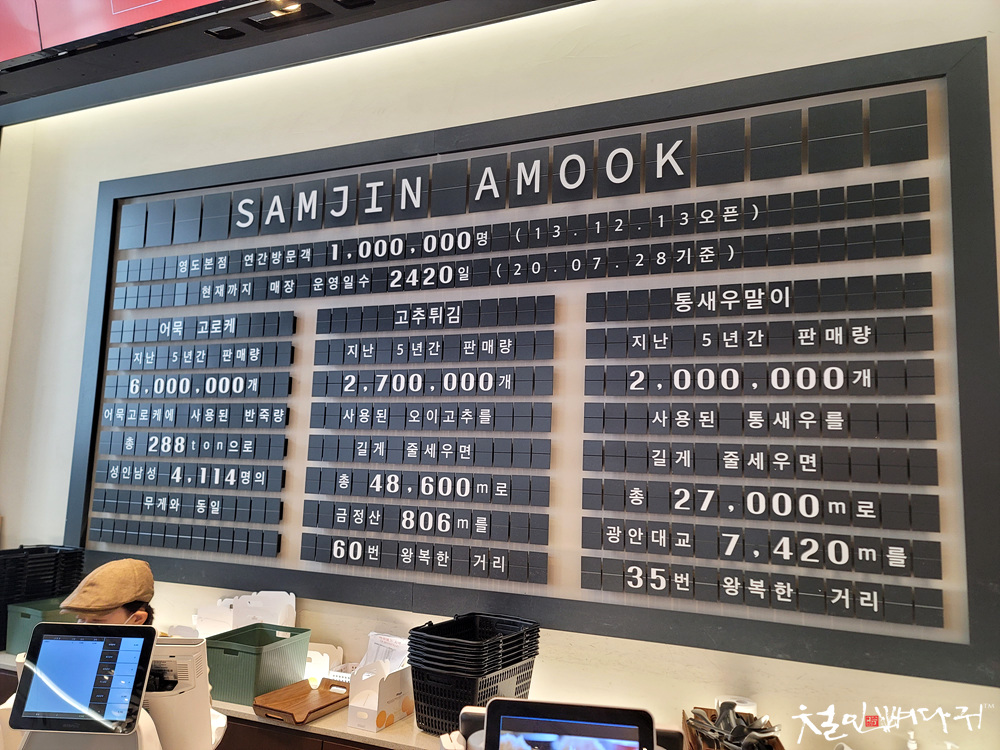 SAMJIN AMOOK
영도본점 연간방문객 1,000,000명 (13.12.13오픈)
현재까지 매장 운영일수 2420일 (20.07.28기준)
어묵 고로케
지난 5년간 판매량
6,000,000개
어묵고로케에 사용된 반죽량
총 288ton으로
성인남성 4,114명의
무게와 동일
고추튀김
지난 5년간 판매량
2,700,000개
사용된 오이고추를
길게 줄세우면
총 48,600m로
금정산 806m를
60번 왕복한 거리
통새우말이
지난 5년간 판매량
2,000,000개
사용된 통새우를
길게 줄세우면
총 27,000m로
광안대교 7,420m를
35번 왕복한 거리
철인뽐다구™